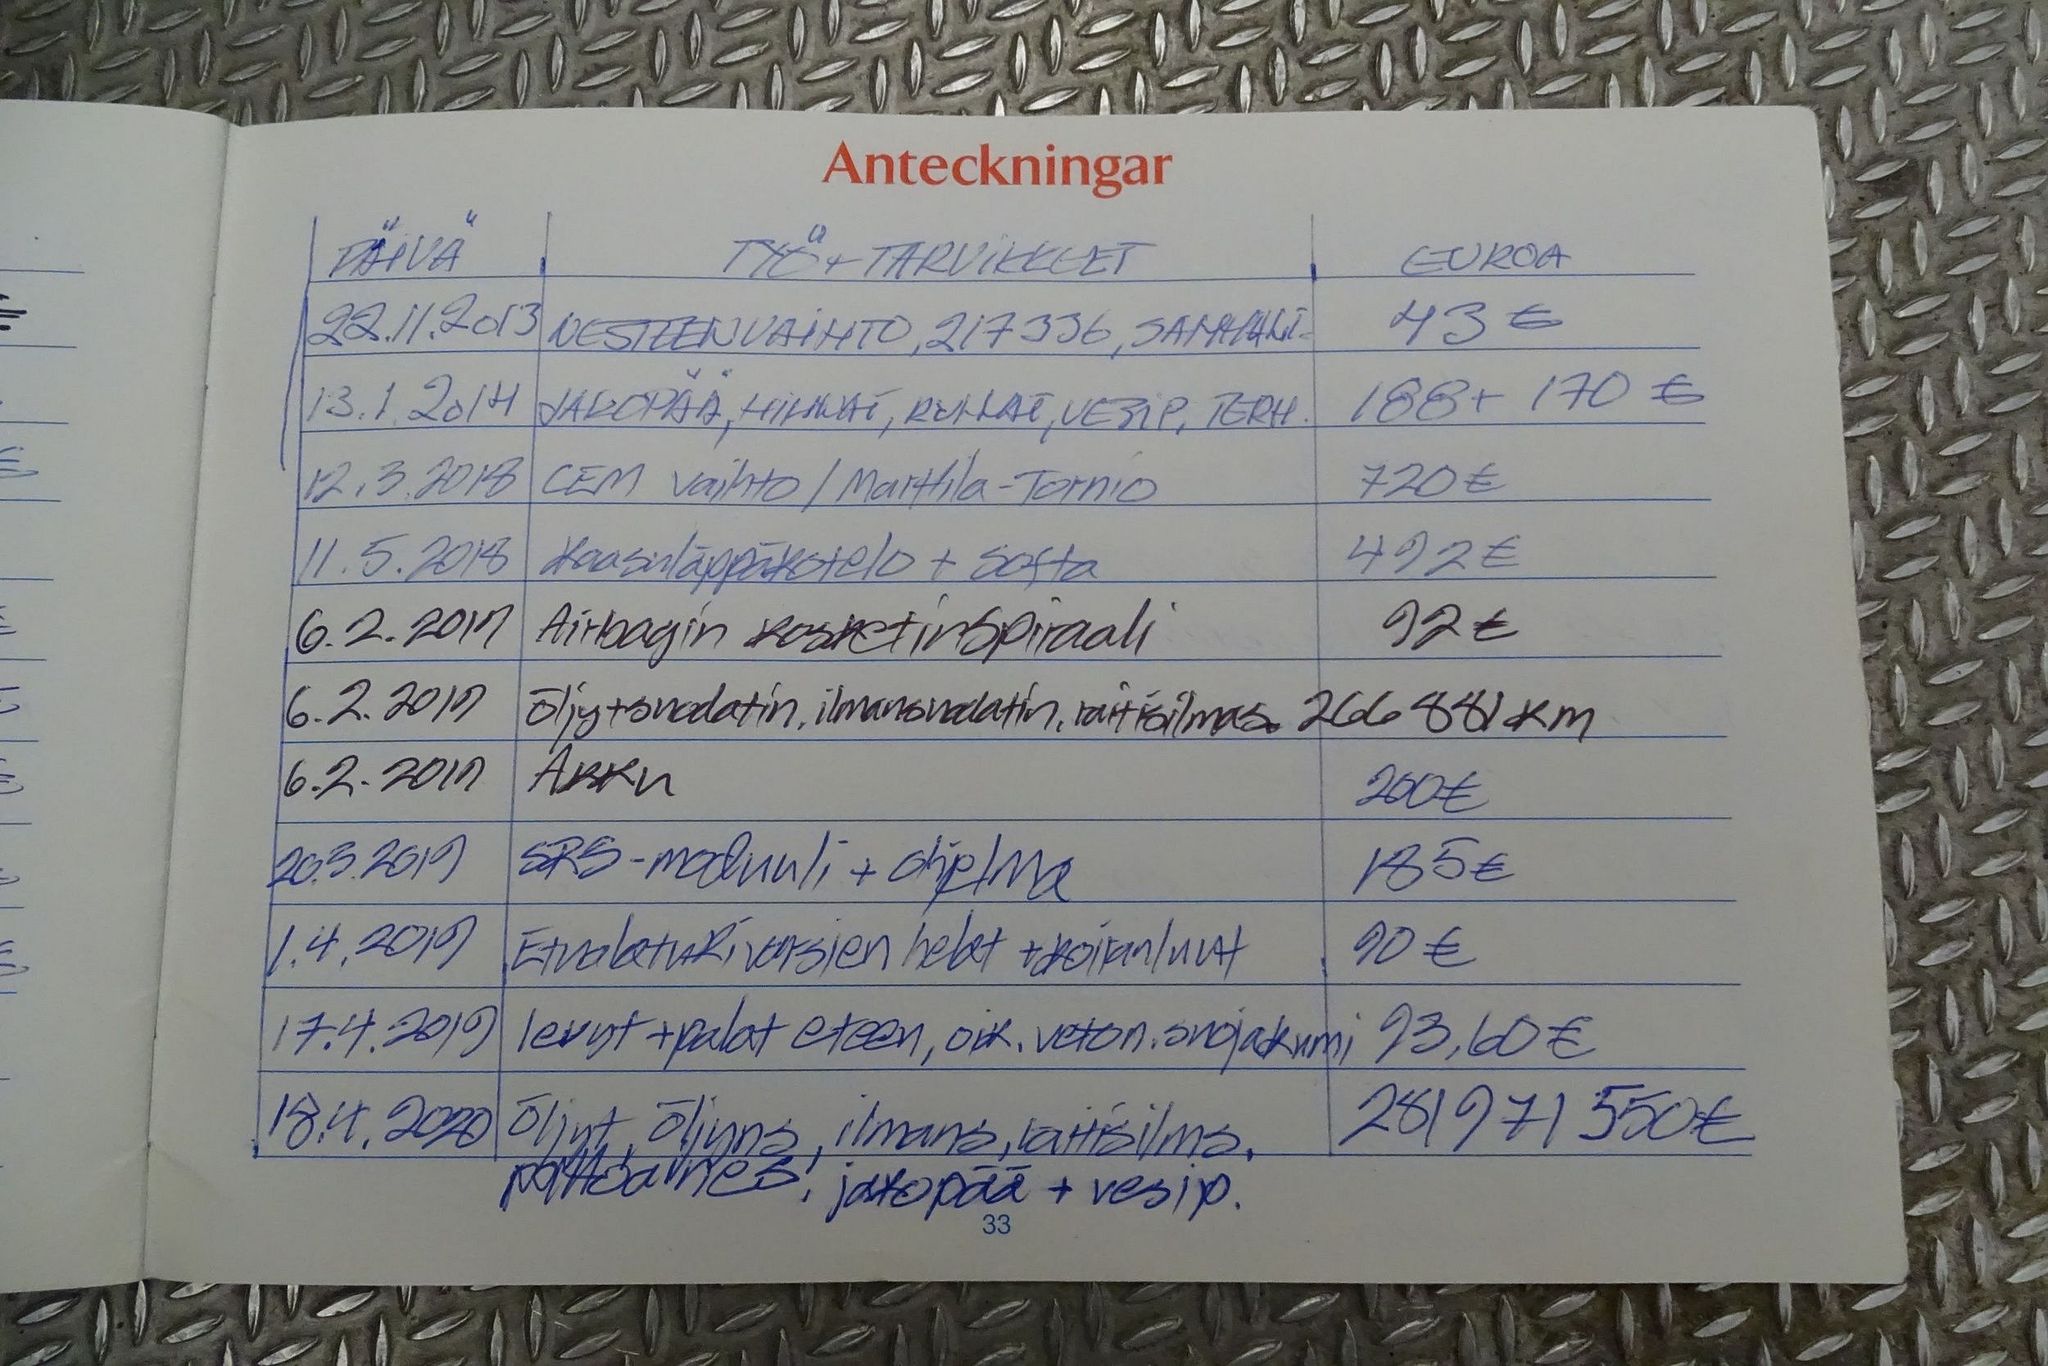 Anteckningar
PÄIVÄ TYÖ + TARVIKKEET EUROA
22.11.2013 NESTEENVAIHTO, 217336, 43 €
13.1.2014 JAKOPÄÄ, HIHNAT, RULLAT, VESIP, TERM. 188+ 170 €
12.3.2018 CEM vaihto / Marttila-Tornio 720 €
11.5.2018 Kaasuläppäkotelo + softa 492 €
6.2.2019 Airbagin kosketinspiraali 92 €
6.2.2019 Öljyt+suodatin, ilmansuodatin, raitisilmas. 266881 km
6.2.2019 Akku 200€
20.3.2019 SRS-moduuli + ohjelma 185€
1.4.2019 Etualatukivarsien helat + koiranluut 90 €
17.4.2019 levyt + palat eteen, oik. veton. suojakumi 93,60 €
18.4.2020 Öljyt, öljyns, ilmans, raitisilms. 281971 550€
polttoaines, jakopää + vesip.
33